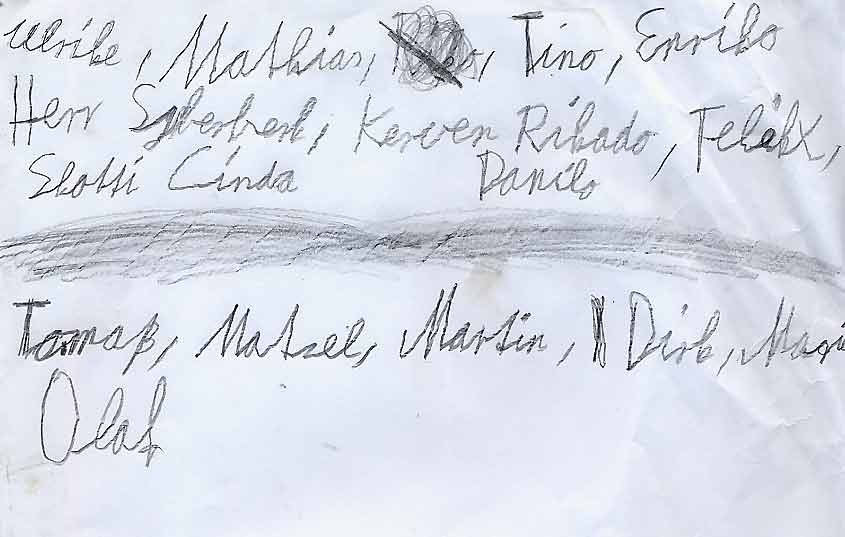 Ulrike, Mathias, Tino, Enriko
Herr Kerven Rikado, Felix,
Skotti Cinda Danilo
Tomaß, Matzel, Martin, Dirk,
Olaf